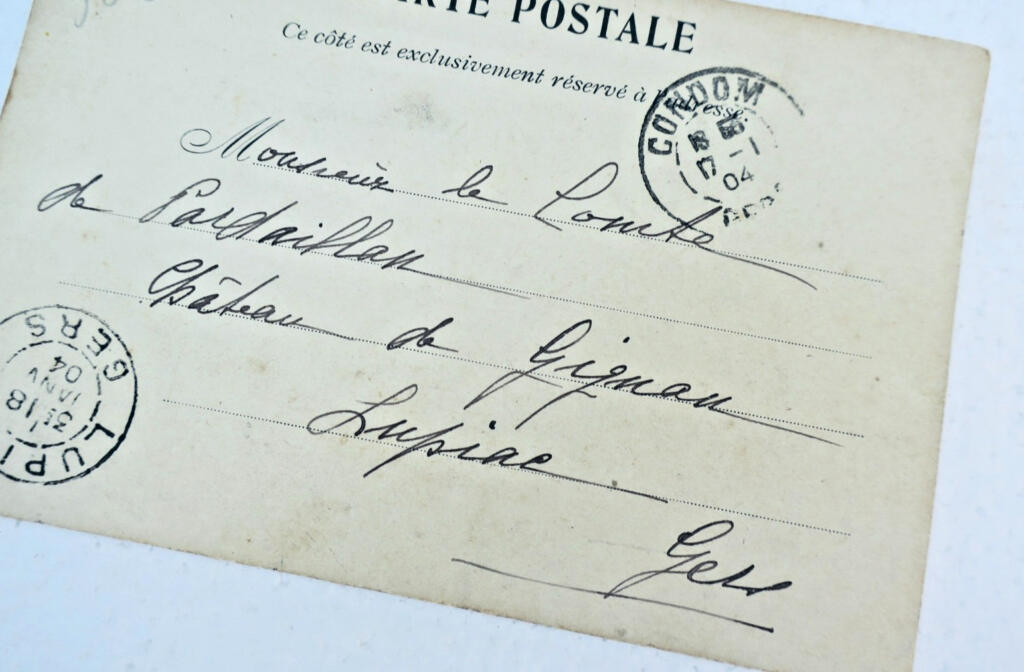 CARTE POSTALE
Ce côté est exclusivement réservé à l'adresse.
CONDOM
17
04
Monsieur le Comte
de Pardaillan
Château de Gignan
Lupiac
Gers
GERS
18
JANV
04
LUPI